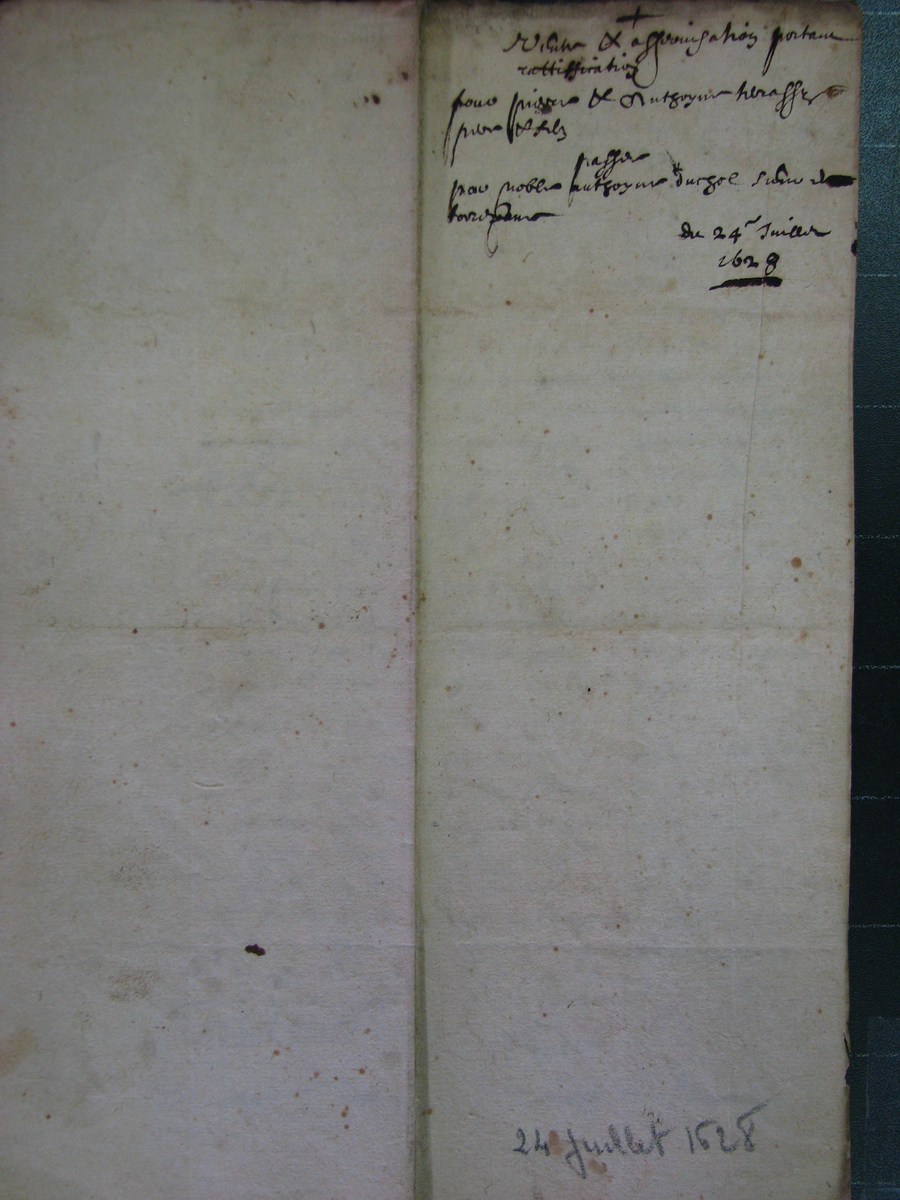 Vente & asservisation portant
rattiffication
pour pierre & Anthoyne terasse
pere & filz
passee
par noble anthoyne duchol sieur de
torrepane
du 24e Juillet
1628
24 Juillet 1628